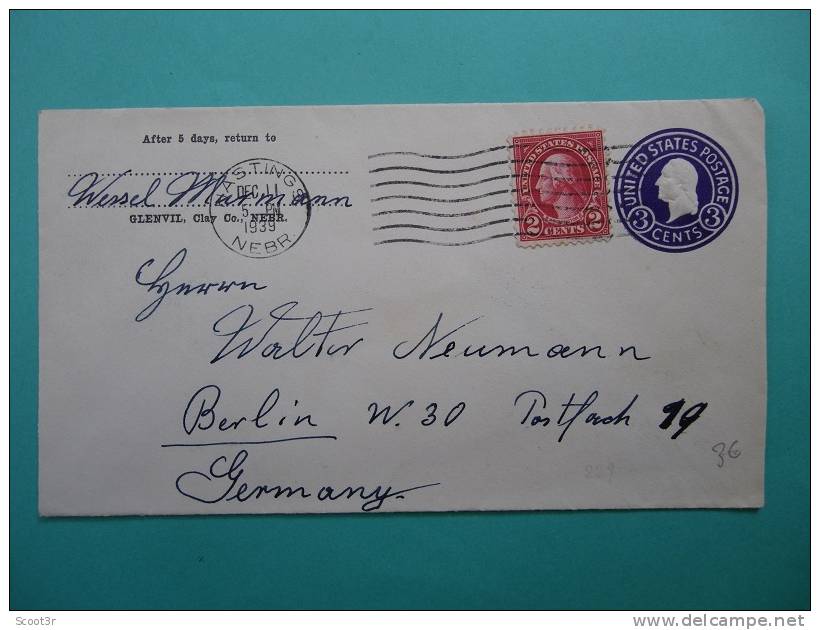 After 5 days, return to
Wessel Murmann
GLENVIL, Clay Co., NEBR.
HASTINGS
DEC 11
5 PM
1939
NEBR.
UNITED STATES POSTAGE
2 CENTS 2
UNITED STATES POSTAGE
3 CENTS 3
Herrn
Walter Neumann
Berlin W. 30 Postfach 19
Germany.
36
229
Scoot3r
delcampe.net